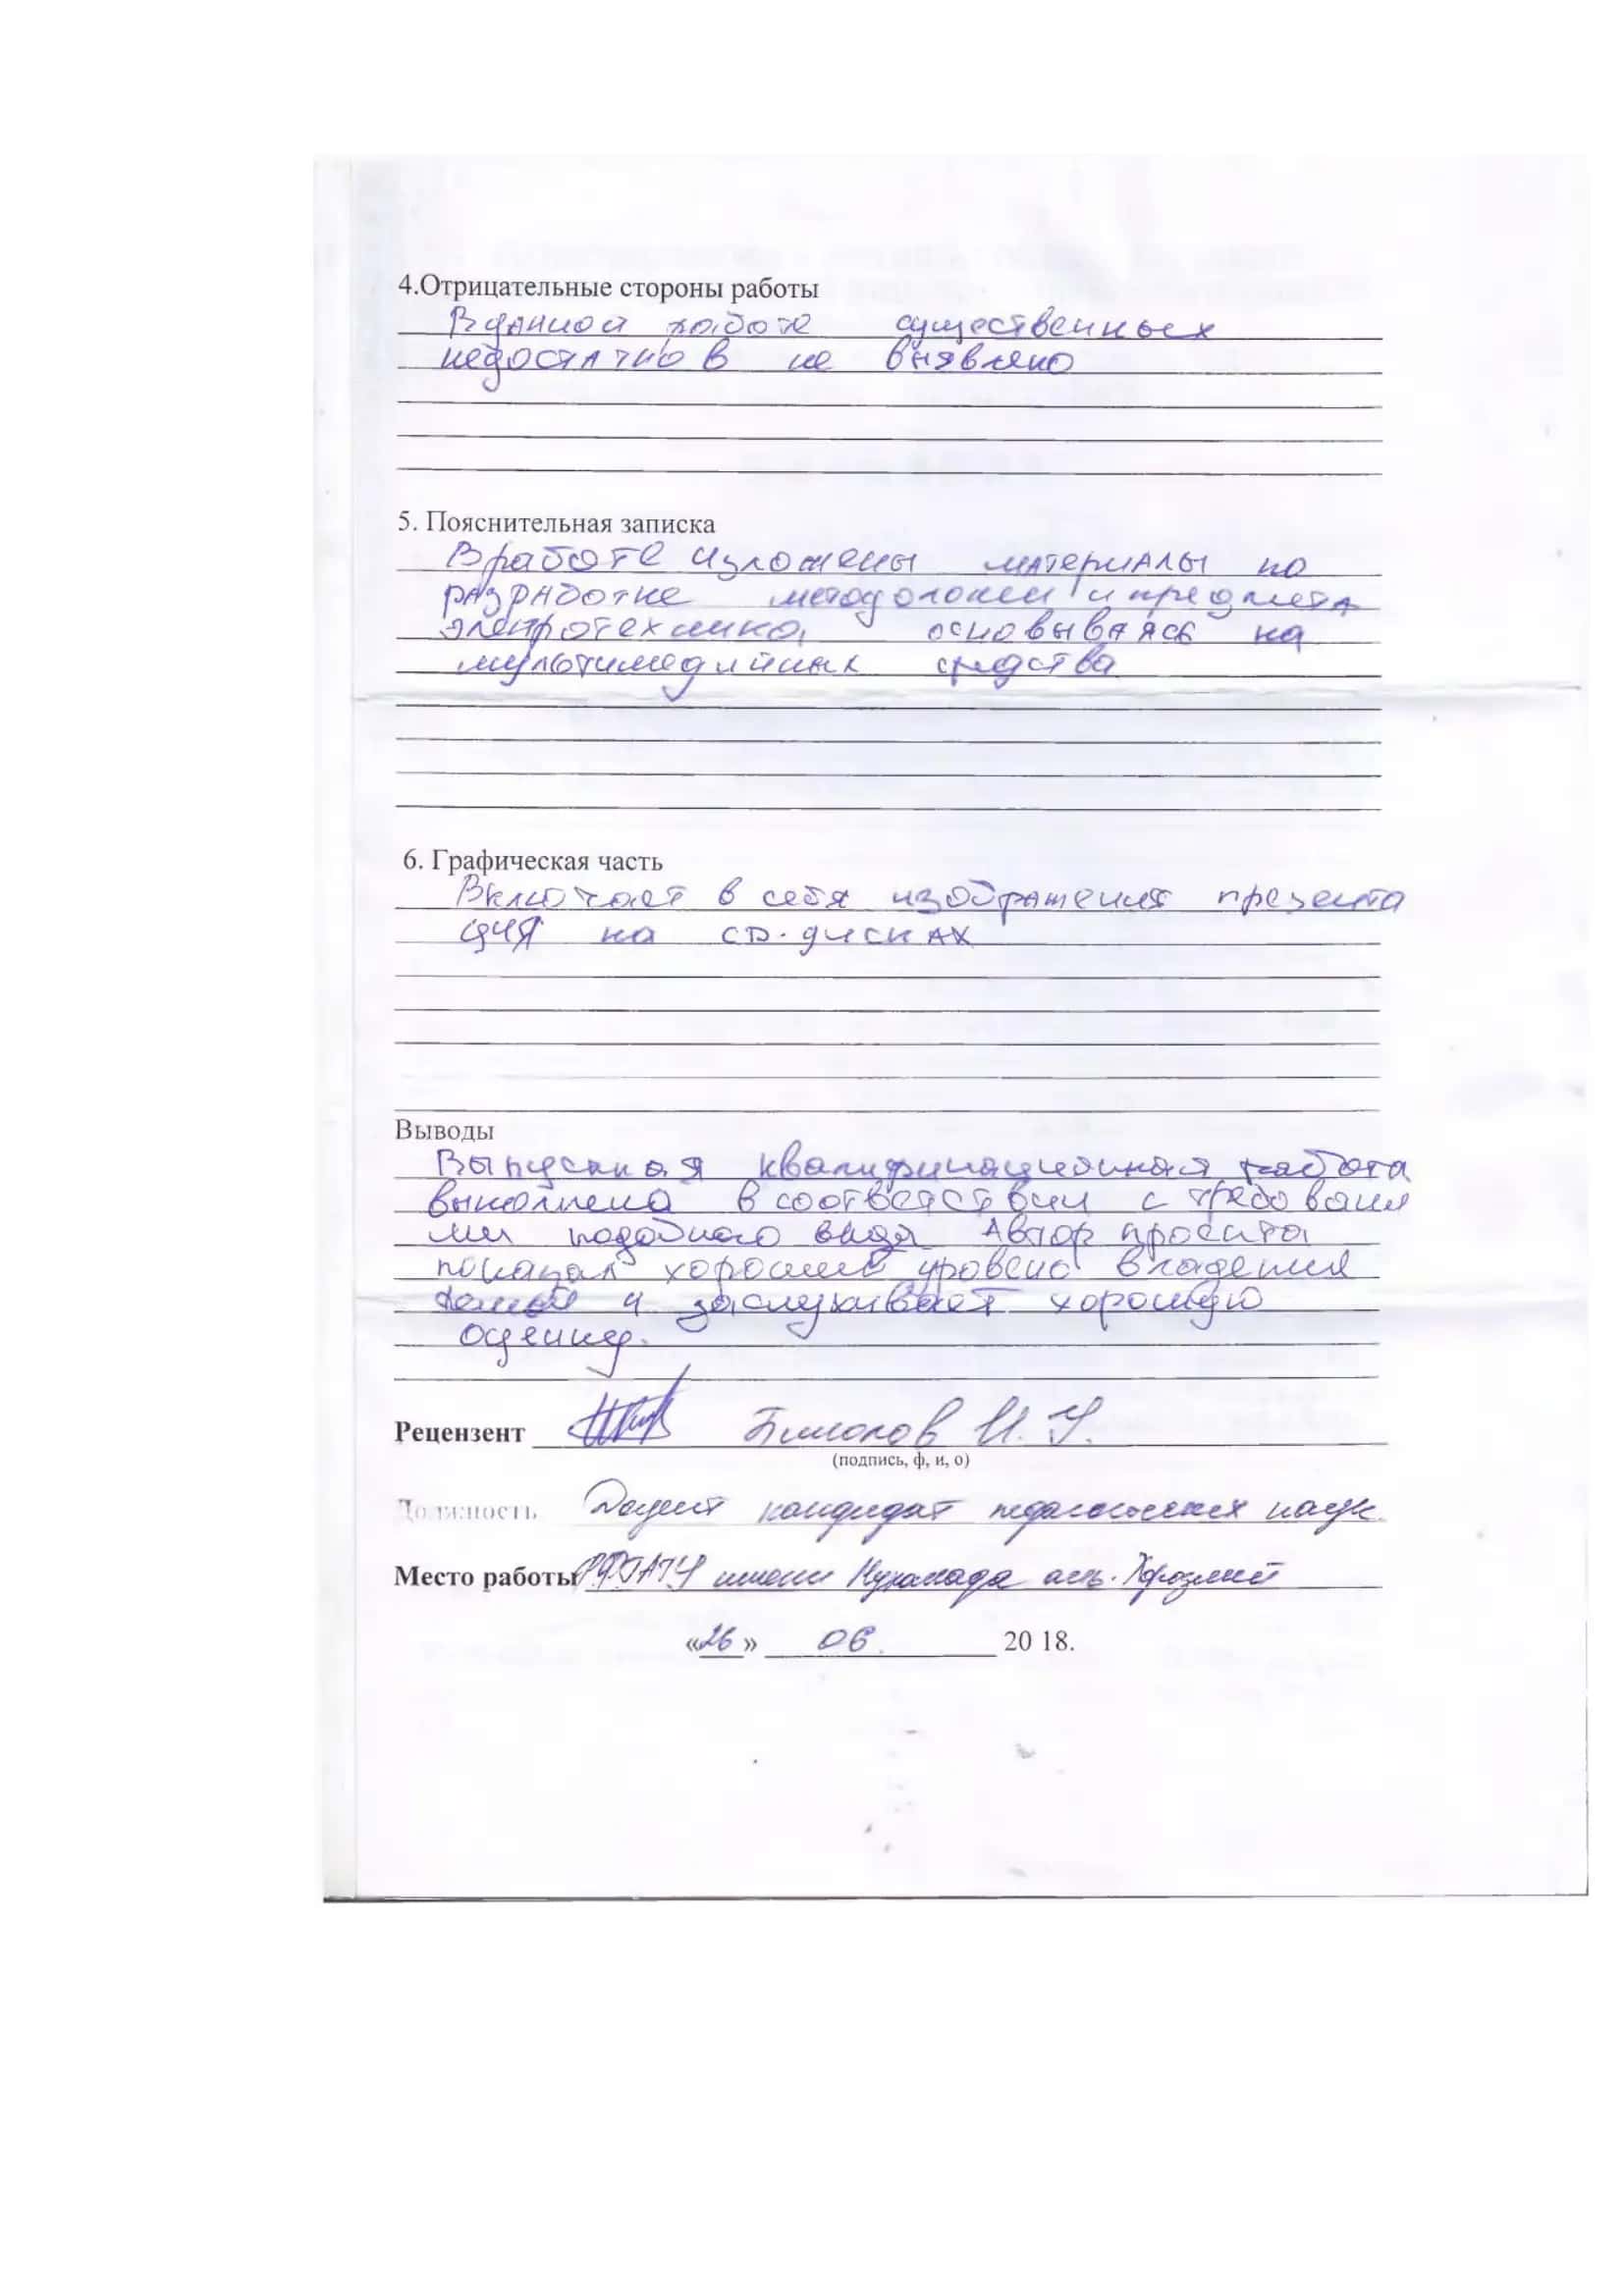 4.Отрицательные стороны работы
В данной работе существенных
недостатков не выявлено
5. Пояснительная записка
В работе изложены материалы по
разработке и предмета
электротехника, основываясь на
мультимедийных средства
6. Графическая часть
Включает в себя изображения презента
ция на CD-дисках
Выводы
Выпускная квалификационная работа
выполнена в соответствии с требовани
ми подобного вида Автор проекта
показал хороший уровень владения
и заслуживает хорошую
оценку.
Рецензент И. У.
(подпись, ф, и, о)
Должность Доцент кандидат педагогических наук
Место работы имени ал. Хоразмий
«26» 06. 20 18.